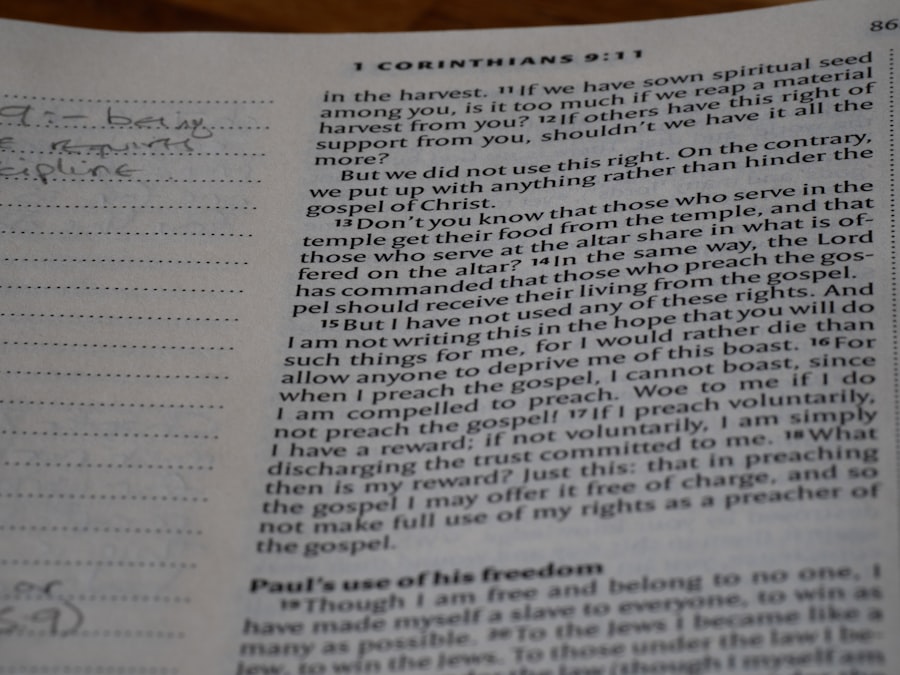 86
1 CORINTHIANS 9:11
in the harvest. 11 If we have sown spiritual seed
among you, is it too much if we reap a material
harvest from you? 12 If others have this right of
support from you, shouldn't we have it all the
more?
But we did not use this right. On the contrary,
we put up with anything rather than hinder the
gospel of Christ.
13 Don't you know that those who serve in the
temple get their food from the temple, and that
those who serve at the altar share in what is of-
fered on the altar? 14 In the same way, the Lord
has commanded that those who preach the gos-
pel should receive their living from the gospel.
15 But I have not used any of these rights. And
I am not writing this in the hope that you will do
such things for me, for I would rather die than
allow anyone to deprive me of this boast. 16 For
when I preach the gospel, I cannot boast, since
I am compelled to preach. Woe to me if I do
not preach the gospel! 17 If I preach voluntarily,
I have a reward; if not voluntarily, I am simply
discharging the trust committed to me. 18 What
then is my reward? Just this: that in preaching
the gospel I may offer it free of charge, and so
not make full use of my rights as a preacher of
the gospel.
Paul's use of his freedom
19 Though I am free and belong to no one, I
have made myself a slave to everyone, to win as
many as possible. 20 To the Jews I became like a
Jew, to win the Jews. To those under the law I be-
the law (though I myself am
9:- being
requires
cipline
or
5-9)